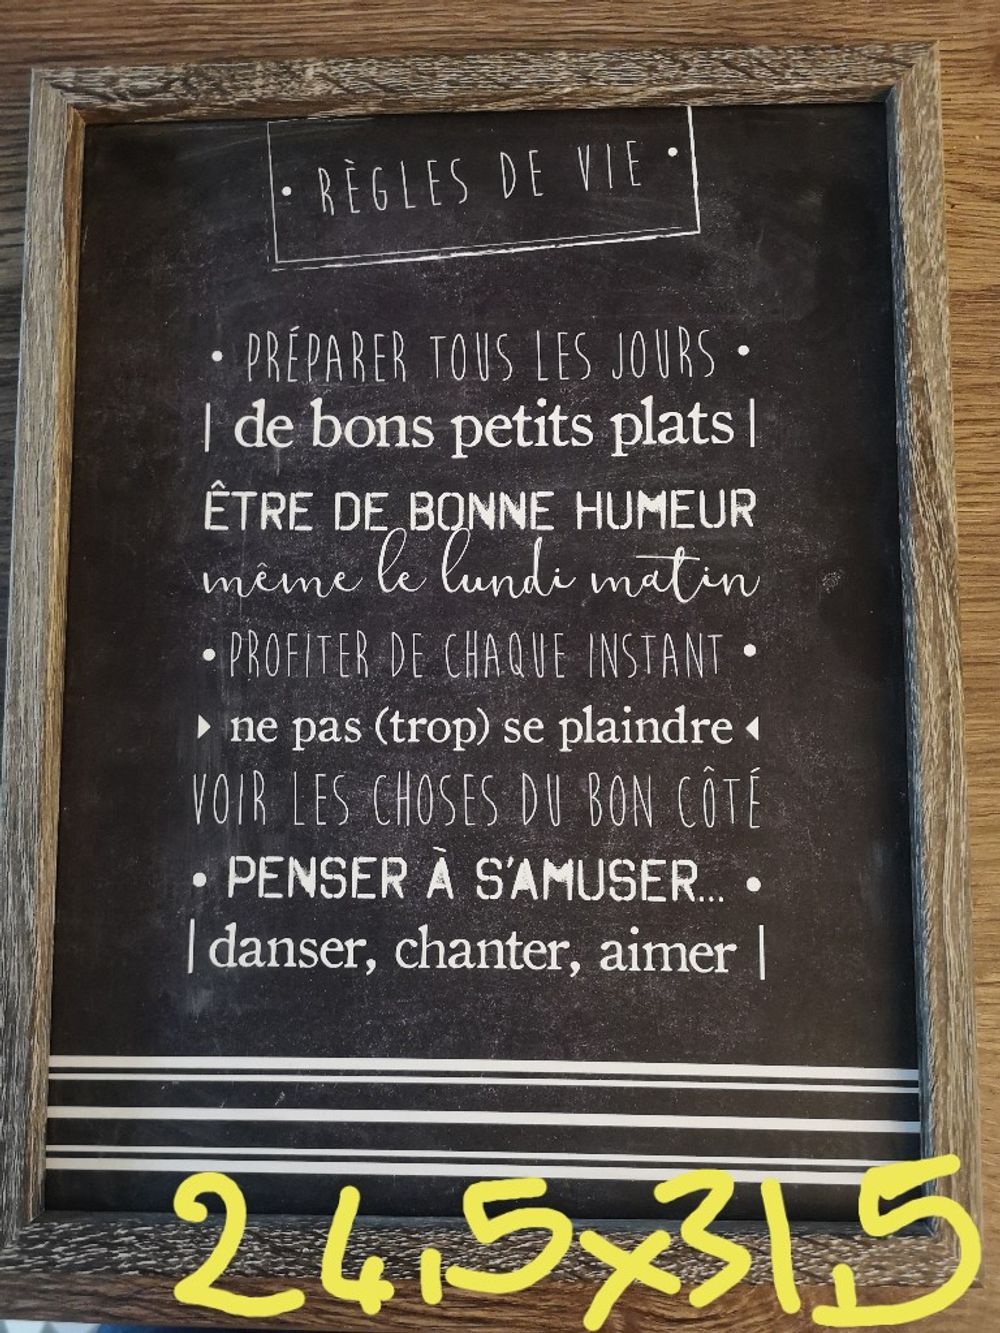 • RÈGLES DE VIE •
• PRÉPARER TOUS LES JOURS •
| de bons petits plats |
ÊTRE DE BONNE HUMEUR
même le lundi matin
• PROFITER DE CHAQUE INSTANT •
ne pas (trop) se plaindre
VOIR LES CHOSES DU BON CÔTÉ
• PENSER À S'AMUSER... •
| danser, chanter, aimer |
24,5x31,5